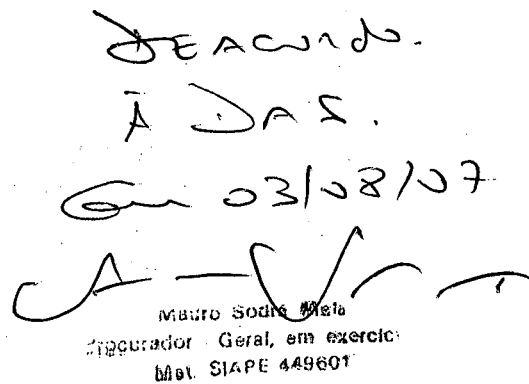 DE ACORDO.
À DAS.
Em 03/08/07
Mauro Sodré Maia
Procurador - Geral, em exercíci
Mat. SIAPE 449601